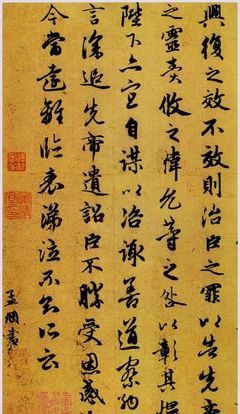 興復之效不效則治臣之罪以告先帝
之靈責攸之禕允等之咎以彰其慢
陛下亦宜自謀以咨諏善道察納
言深追先帝遺詔臣不勝受恩感
今當遠離臨表涕泣不知所云
孟頫書